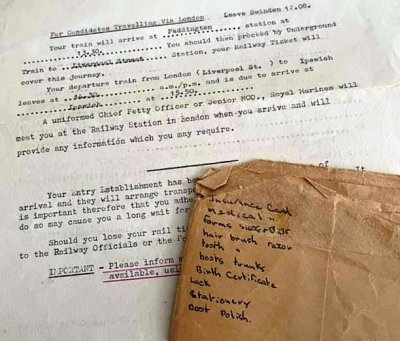 For Candidates Travelling Via London Leave Swindon 12.08.
Your train will arrive at Paddington station at
13.30. You should then proceed by Underground
Train to Liverpool Street Station, your Railway Ticket will
cover this journey.
Your departure train from London (Liverpool St. ) to Ipswich
leaves at 16.30 a.m./p.m. and is due to arrive at
Ipswich at
A uniformed Chief Petty Officer or Senior NCO., Royal Marines will
meet you at the Railway Station in London when you arrive and will
provide any information which you may require.
Your Entry Establishment has be
arrival and they will arrange transpo
is important therefore that you adhe
do so may cause you a long wait for
Should you lose your rail ti
to the Railway Officials or the Po
IMPORTANT - Please inform
available, usi
of
It
Insurance Card
Medical "
forms
hair brush razor
tooth "
boots trunks
Birth Certificate
Lock
Stationery
Boot Polish.